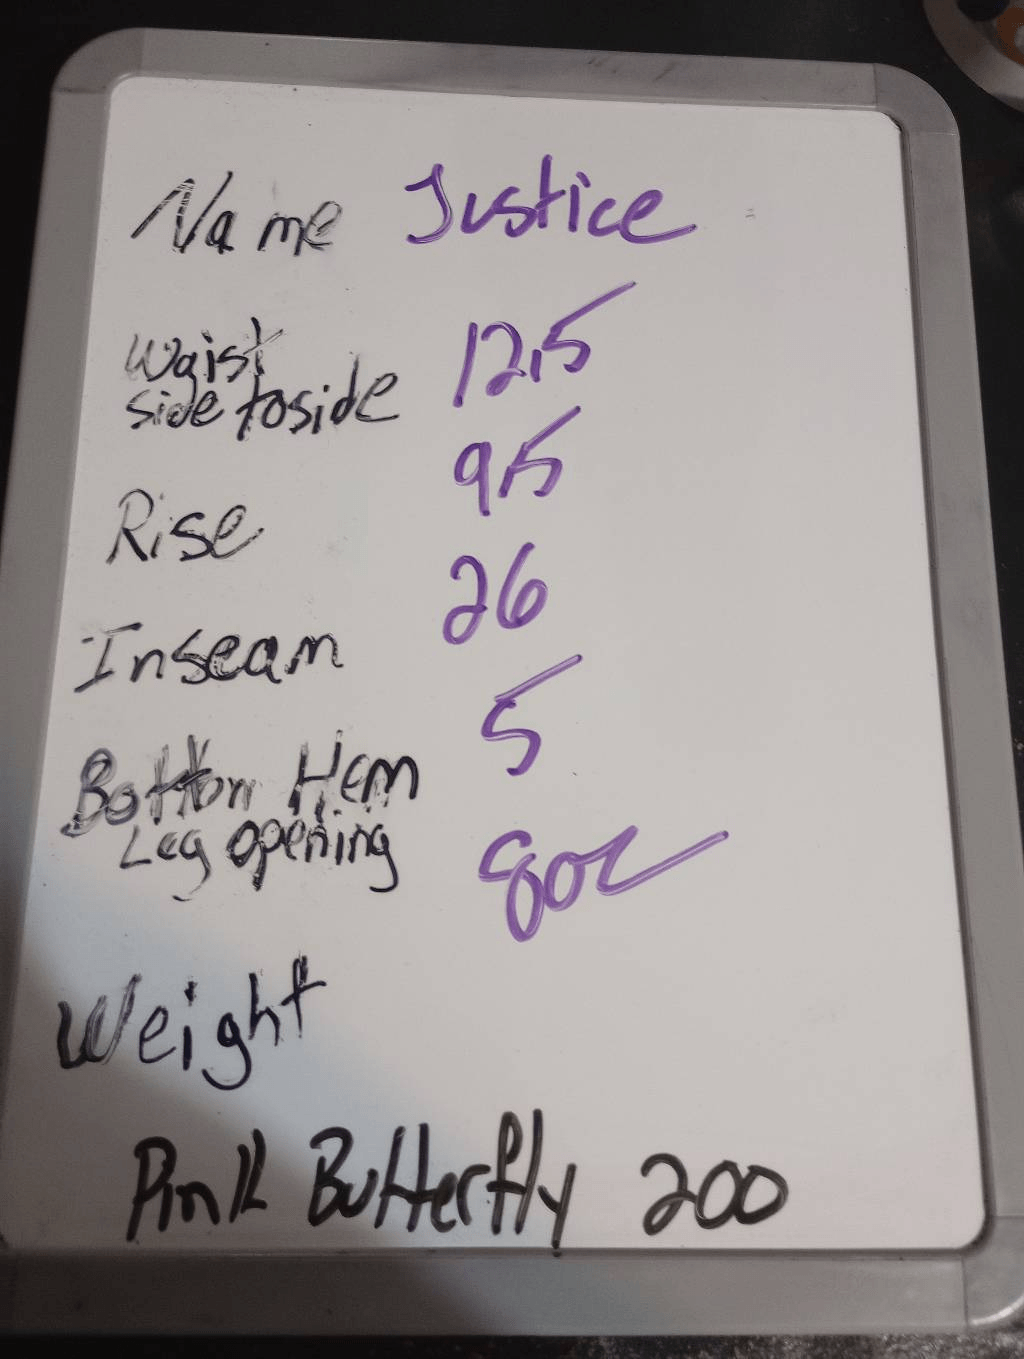 Name Justice
Waist 12.5
side to side
Rise 9.5
Inseam 26
Bottom Hem 5
Leg opening
Weight 8oz
Pink Butterfly 200